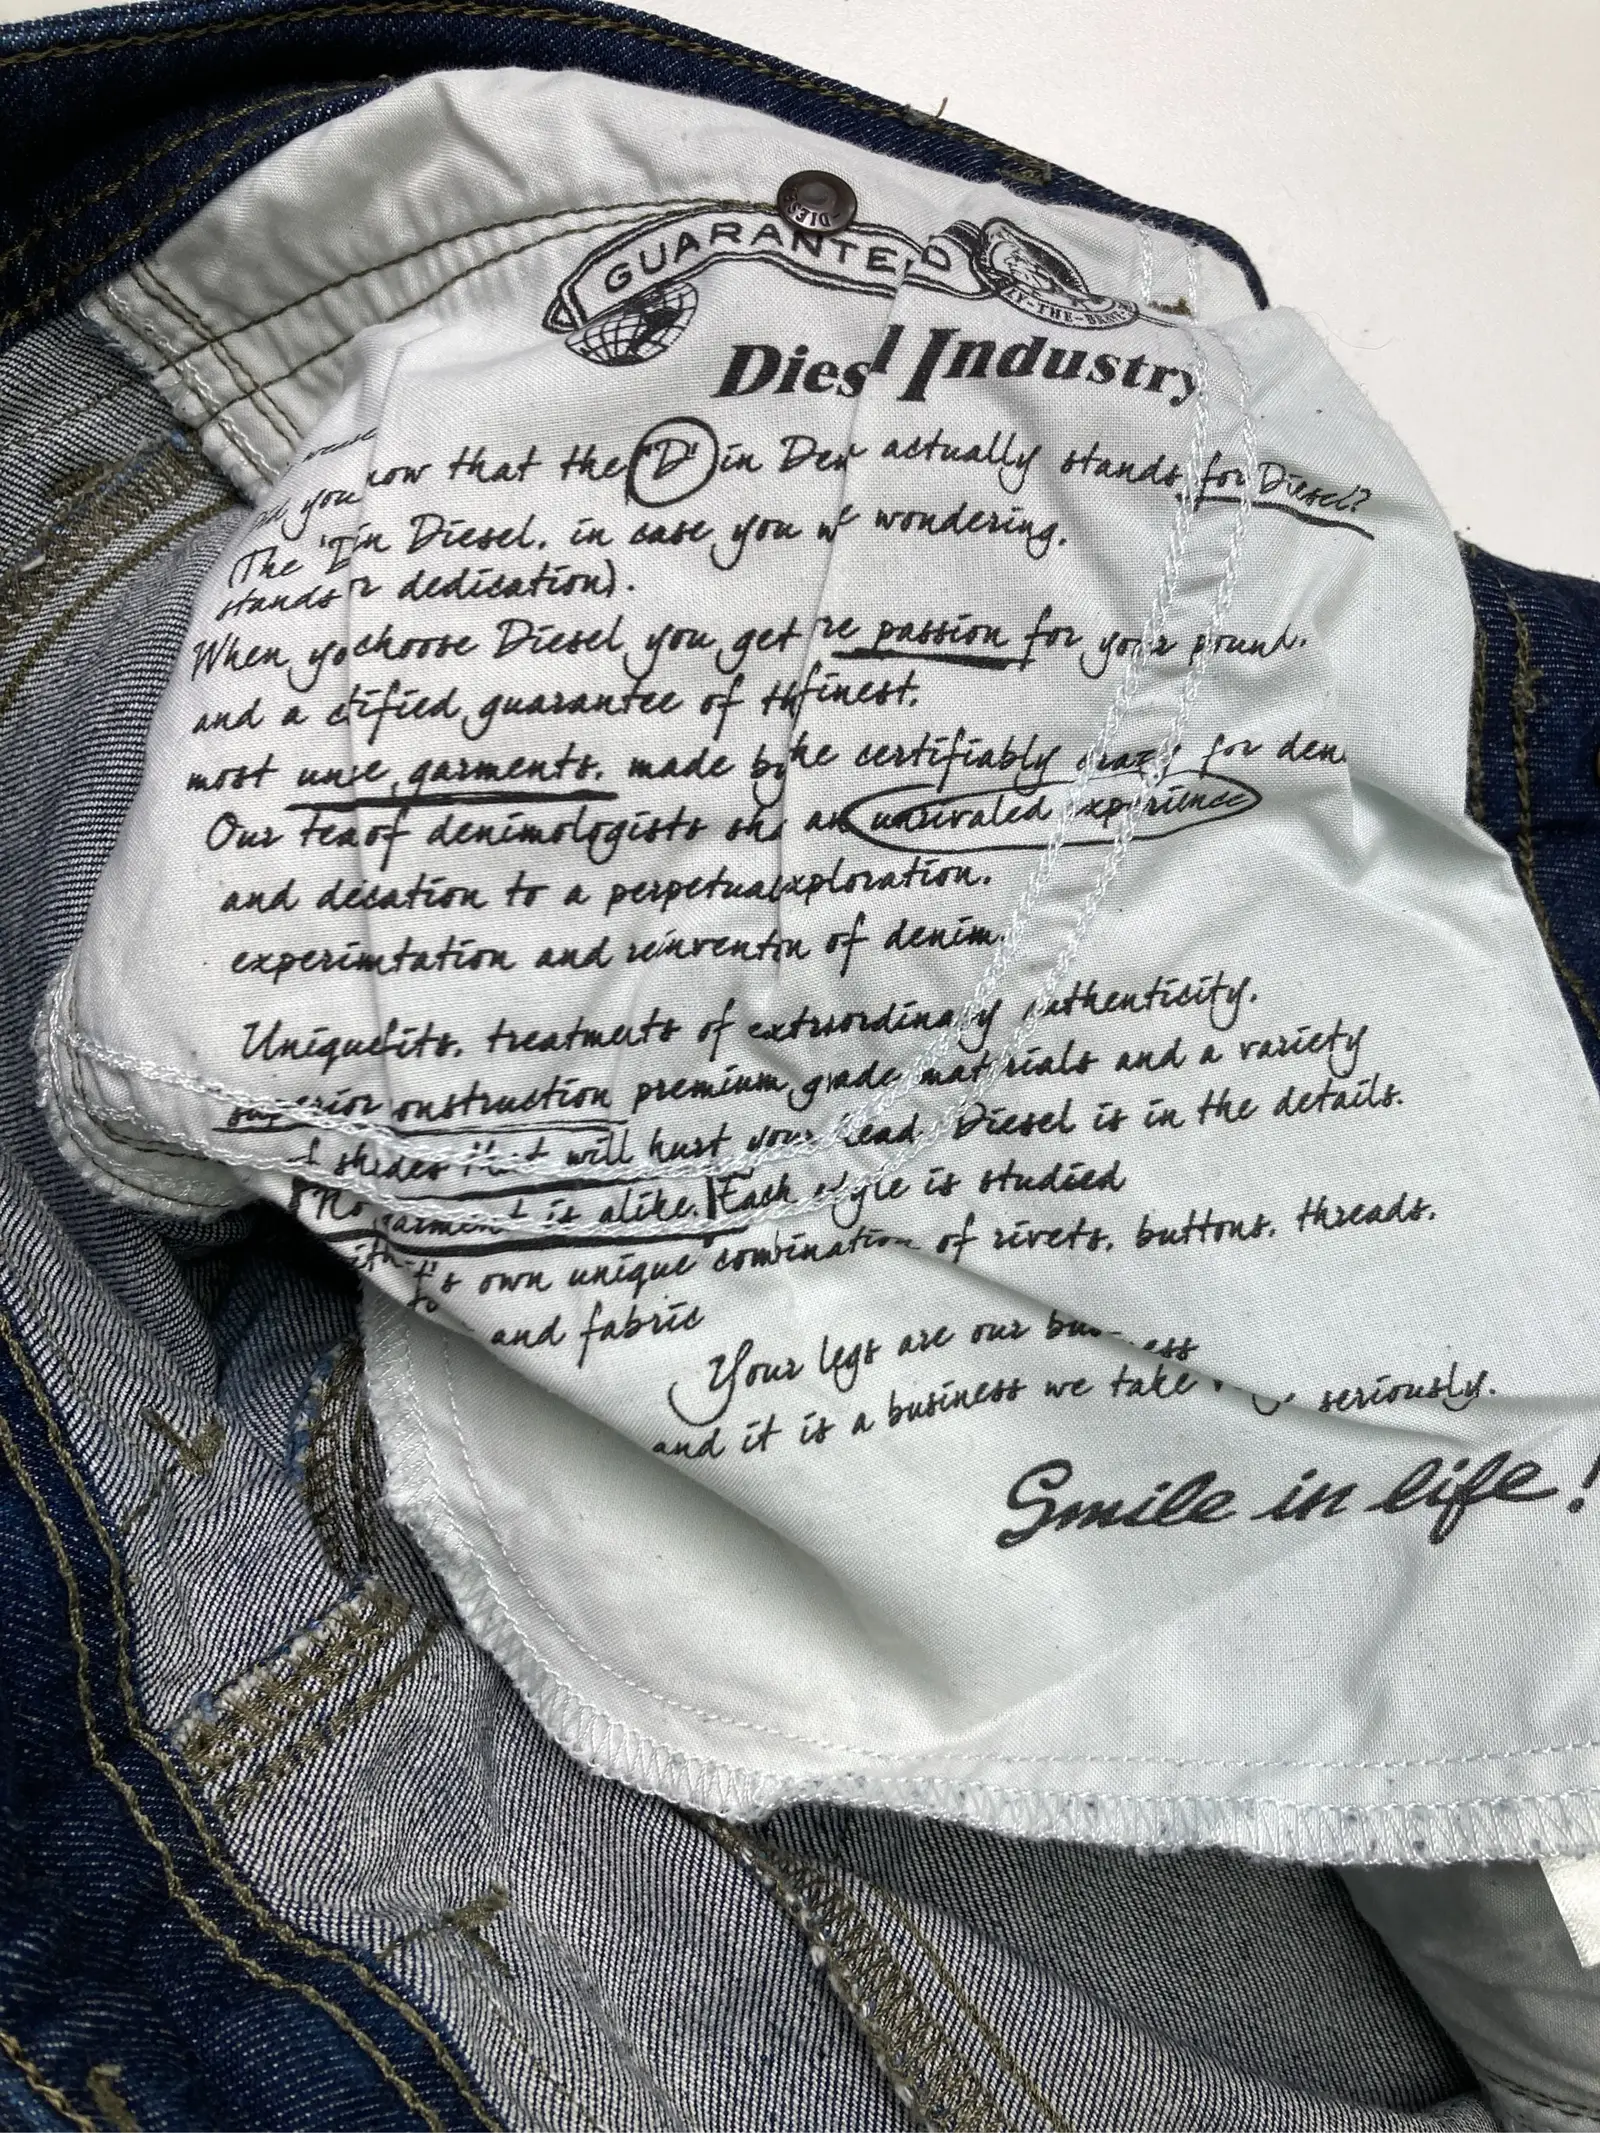 DIES
GUARANTEED
LY-THE-BRAVE
Diesel Industry
Did you know that the 'D' in Den actually stands for Diesel?
(The 'D' in Diesel, in case you we wondering,
stands for dedication).
When you choose Diesel you get re passion for your pound,
and a ctified guarantee of the finest,
most unie garments, made by the certifiably crazy for den
Our team of denimologists sh an unrivaled experience
and dication to a perpetual exploration,
experimtation and reinvention of denim.
Unique fits, treatments of extraordinary authenticity,
superior construction premium grade materials and a variety
of shades that will hurt your head. Diesel is in the details.
No garment is alike. Each style is studied
with it's own unique combination of rivets, buttons, threads,
and fabric
Your legs are our business
and it is a business we take seriously.
Smile in life!